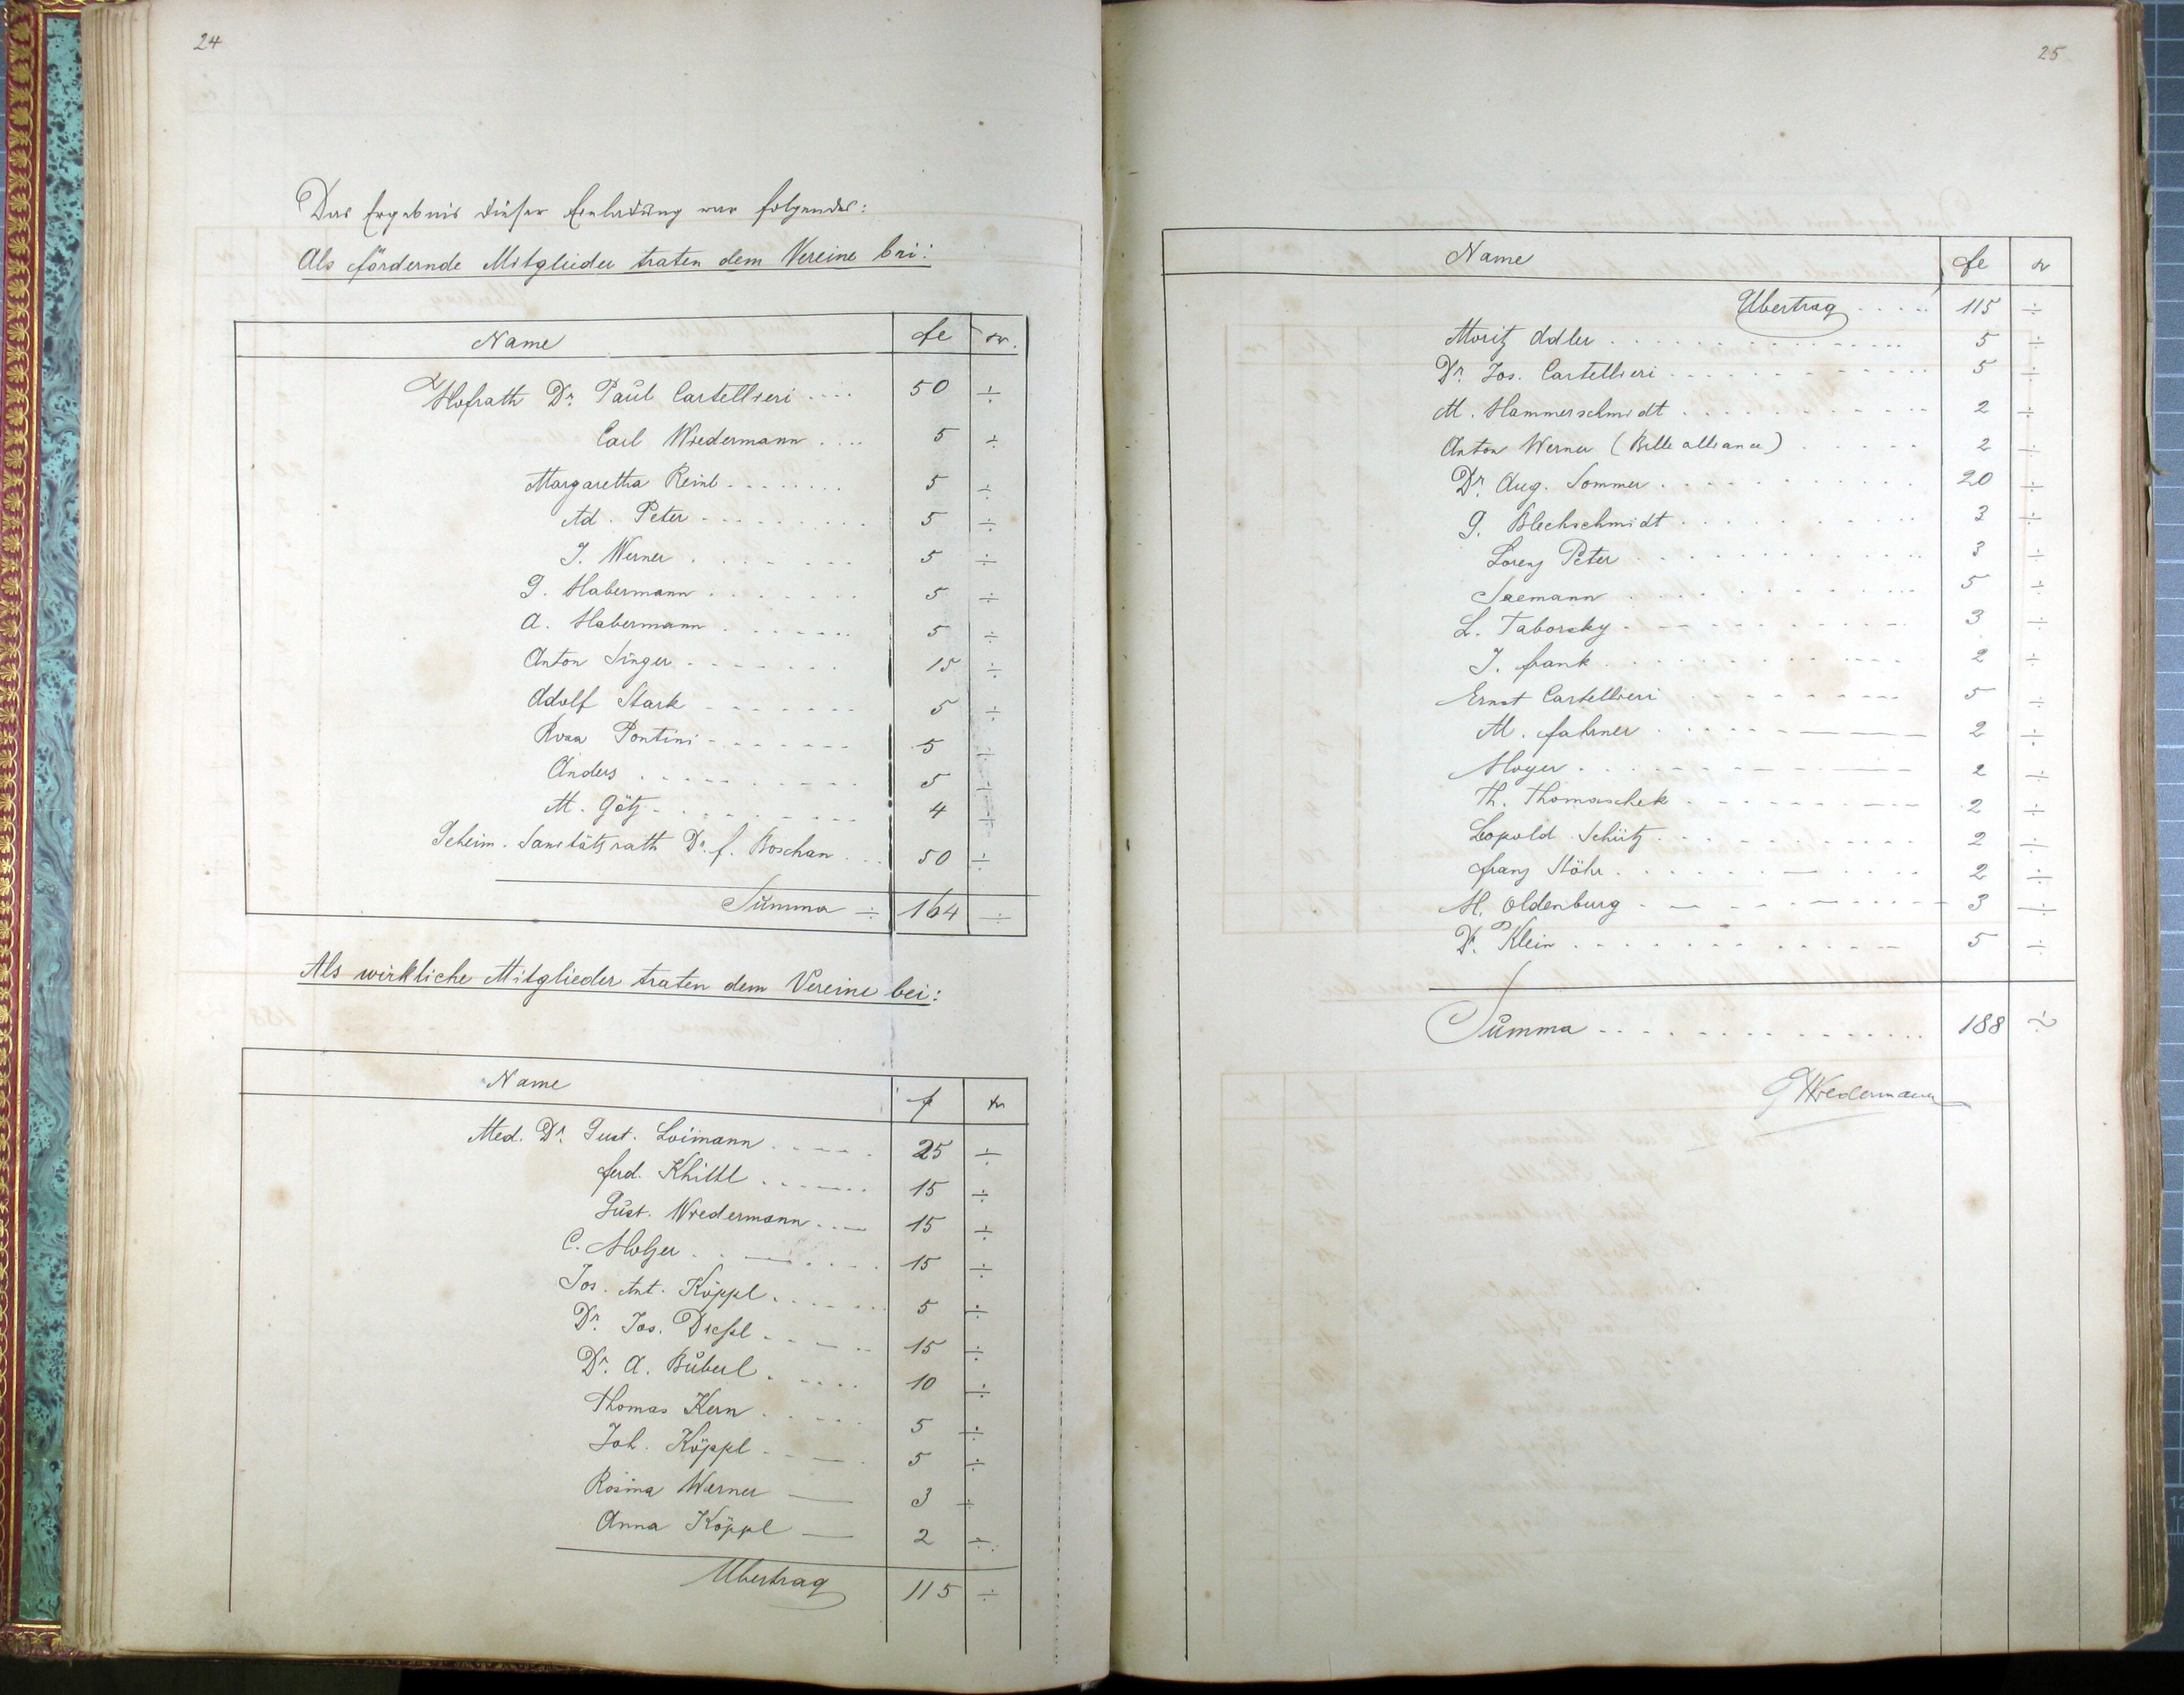 24
Das Ergebnis dieser Einladung war folgendes:
Als fördernde Mitglieder traten dem Vereine bei:
Name fl kr.
Hofrath Dr. Paul Cartellieri .... 50 ÷
Carl Wiedermann .... 5 ÷
Margaretha Reinl ........ 5 ÷
Ad. Peter ......... 5 ÷
J. Werner ....... 5 ÷
G. Habermann ....... 5 ÷
A. Habermann ...... 5 ÷
Anton Singer ....... 15 ÷
Adolf Stark ....... 5 ÷
Rosa Pontini ....... 5 ÷
Anders ......... 5 ÷
M. Götz ......... 4 ÷
Geheim. Sanitätsrath Dr. F. Boschan ... 50 ÷
Summa ÷ 164 ÷
Als wirkliche Mitglieder traten dem Vereine bei:
Name f kr
Med. Dr. Gust. Loimann ..... 25 ÷
Ferd. Khittl ....... 15 ÷
Gust. Wiedermann .... 15 ÷
C. Holzer ...... 15 ÷
Jos. Ant. Köppl ...... 5 ÷
Dr. Jos. Dießl ..... 15 ÷
Dr. A. Buberl ..... 10 ÷
Thomas Kern ..... 5 ÷
Joh. Köppl .... 5 ÷
Rosina Werner — 3 ÷
Anna Köppl — 2 ÷
Übertrag 115 ÷
25
Name fl kr
Übertrag ..... 115 ÷
Moritz Adler ............. 5 ÷
Dr. Jos. Cartellieri ............ 5 ÷
M. Hammerschmidt .......... 2 ÷
Anton Werner (Belle alliance) ..... 2 ÷
Dr. Aug. Sommer .......... 20 ÷
G. Blechschmidt ......... 3 ÷
Lorenz Peter ........... 3 ÷
Saemann ........... 5 ÷
L. Taborsky .......... 3 ÷
J. Frank ........... 2 ÷
Ernst Cartellieri ........ 5 ÷
M. Fahrner ........ 2 ÷
Moyer ......... 2 ÷
Th. Thomaschek ......... 2 ÷
Leopold Schütz ........... 2 ÷
Franz Stöhr .......... 2 ÷
H. Oldenburg ......... 3 ÷
Dr. Klein ............ 5 ÷
Summa ............. 188 ÷
G Wiedermann